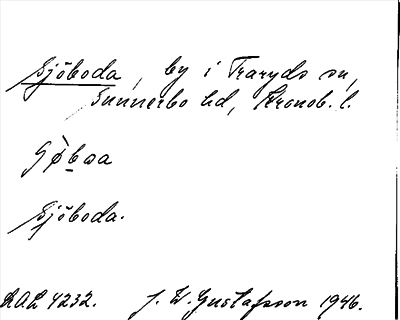 Sjöboda, by i Traryds sn,
Sunnerbo hd, Kronob. l.
Sjöboda.
RAÄ 4232. J. W. Gustafsson 1946.